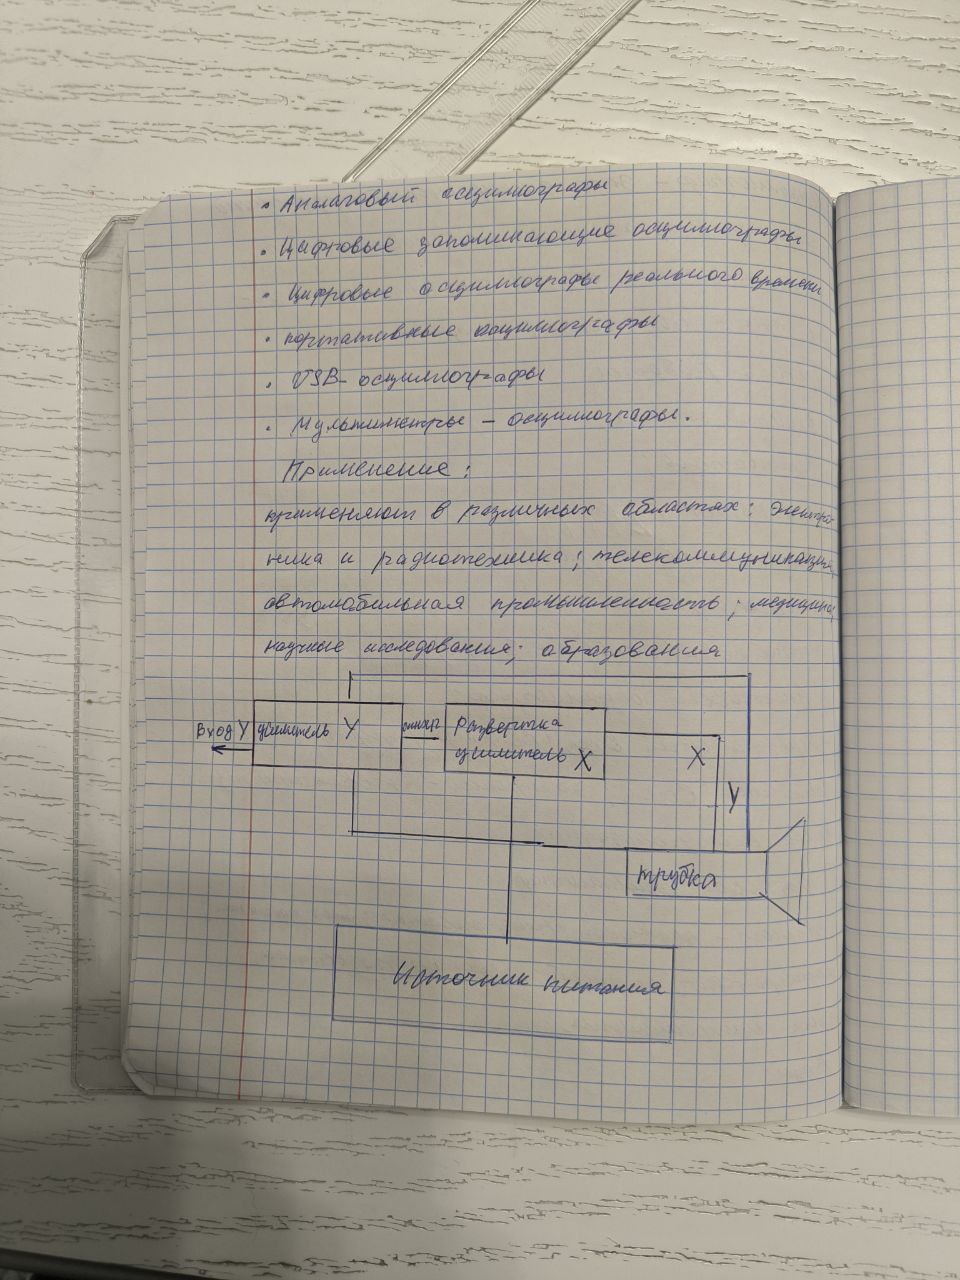 • Аналаговый осциллографы
• Цифровые запоминающие осциллографы
• Цифровые осциллографы реального времени
• портативные осциллографы
• USB-осциллографы
• Мультиметры – осциллографы.
Применение:
применяют в различных областях: электро
ника и радиотехника; телекоммуникации,
автомобильная промышленность; медицина,
научные исследования; образования
Вход Y усилитель Y синхр Развертка
усилитель X X
Y
трубка
Источник питания